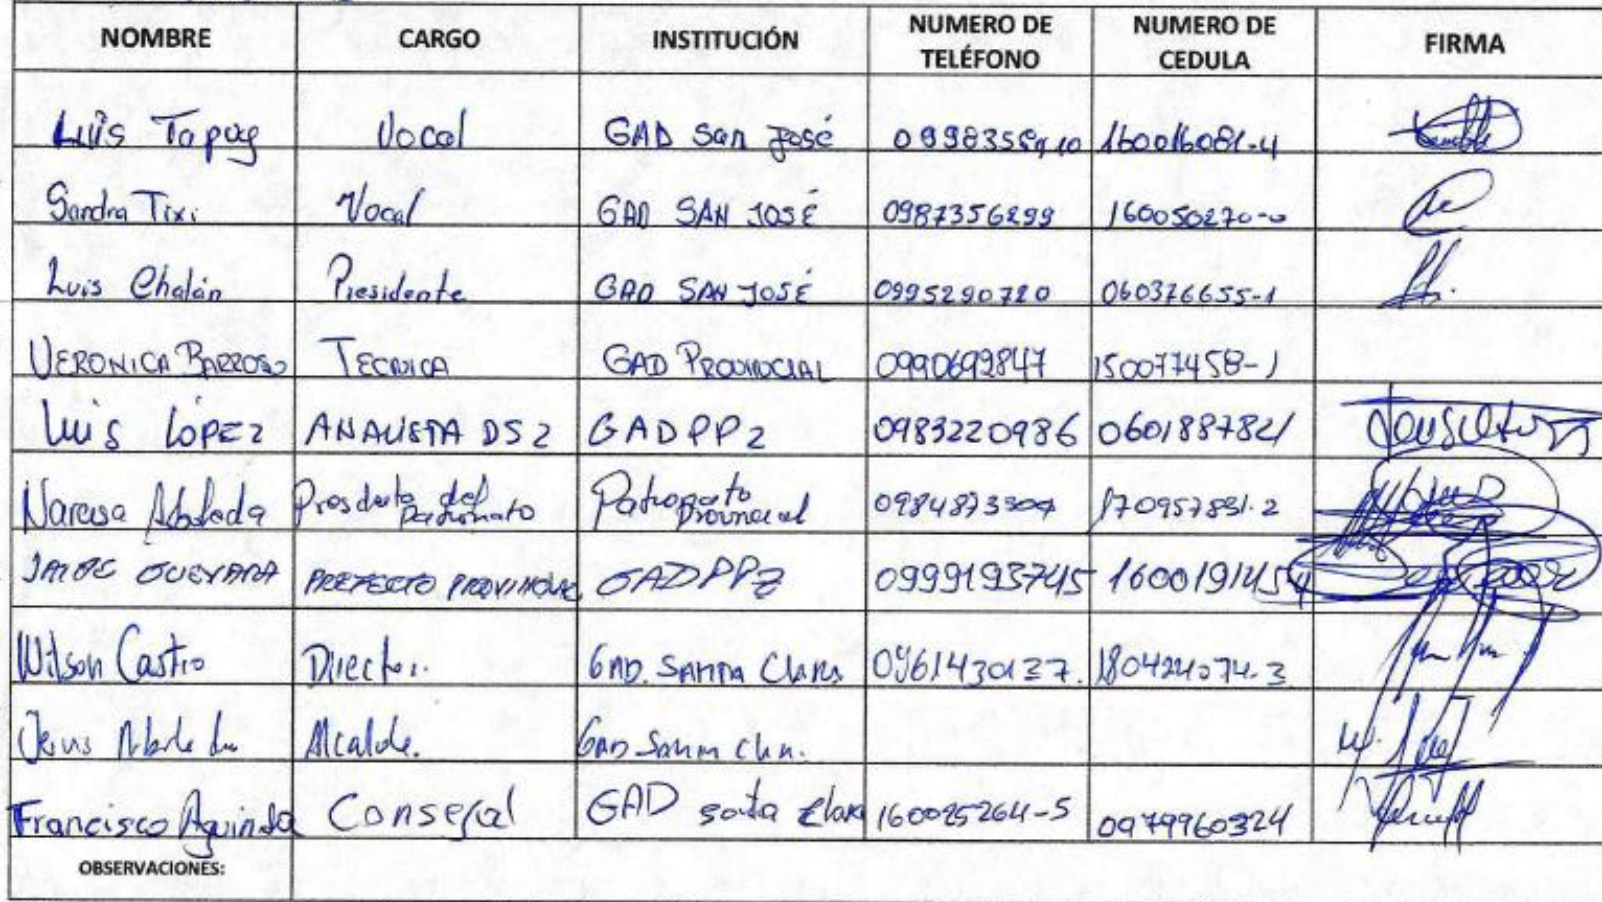 NOMBRE CARGO INSTITUCIÓN NUMERO DE TELÉFONO NUMERO DE CEDULA FIRMA
Luis Tapuy Vocal GAD San José 160016081-4
Sandra Tixi Vocal GAD SAN JOSÉ 0987356299 160050270-0
Luis Chalán Presidente GAD SAN JOSÉ 0995290720 060376655-1
VERONICA BARROSO TECNICA GAD PROVINCIAL 0990692847 150077458-1
Luis LÓPEZ ANALISTA DS2 GADPPz 0983220986
Narcisa Presidenta del Patronato Patronato Provincial
JAIME GUEVARA PREFECTO PROVINCIAL GADPPz 0999193745 1600191454
Wilson Castro Director. GAD. SANTA Clara 0961430137. 180424074-3
Alcalde. GAD Santa
Francisco Aguinda Consejal GAD santa Clara 0979960324
OBSERVACIONES: